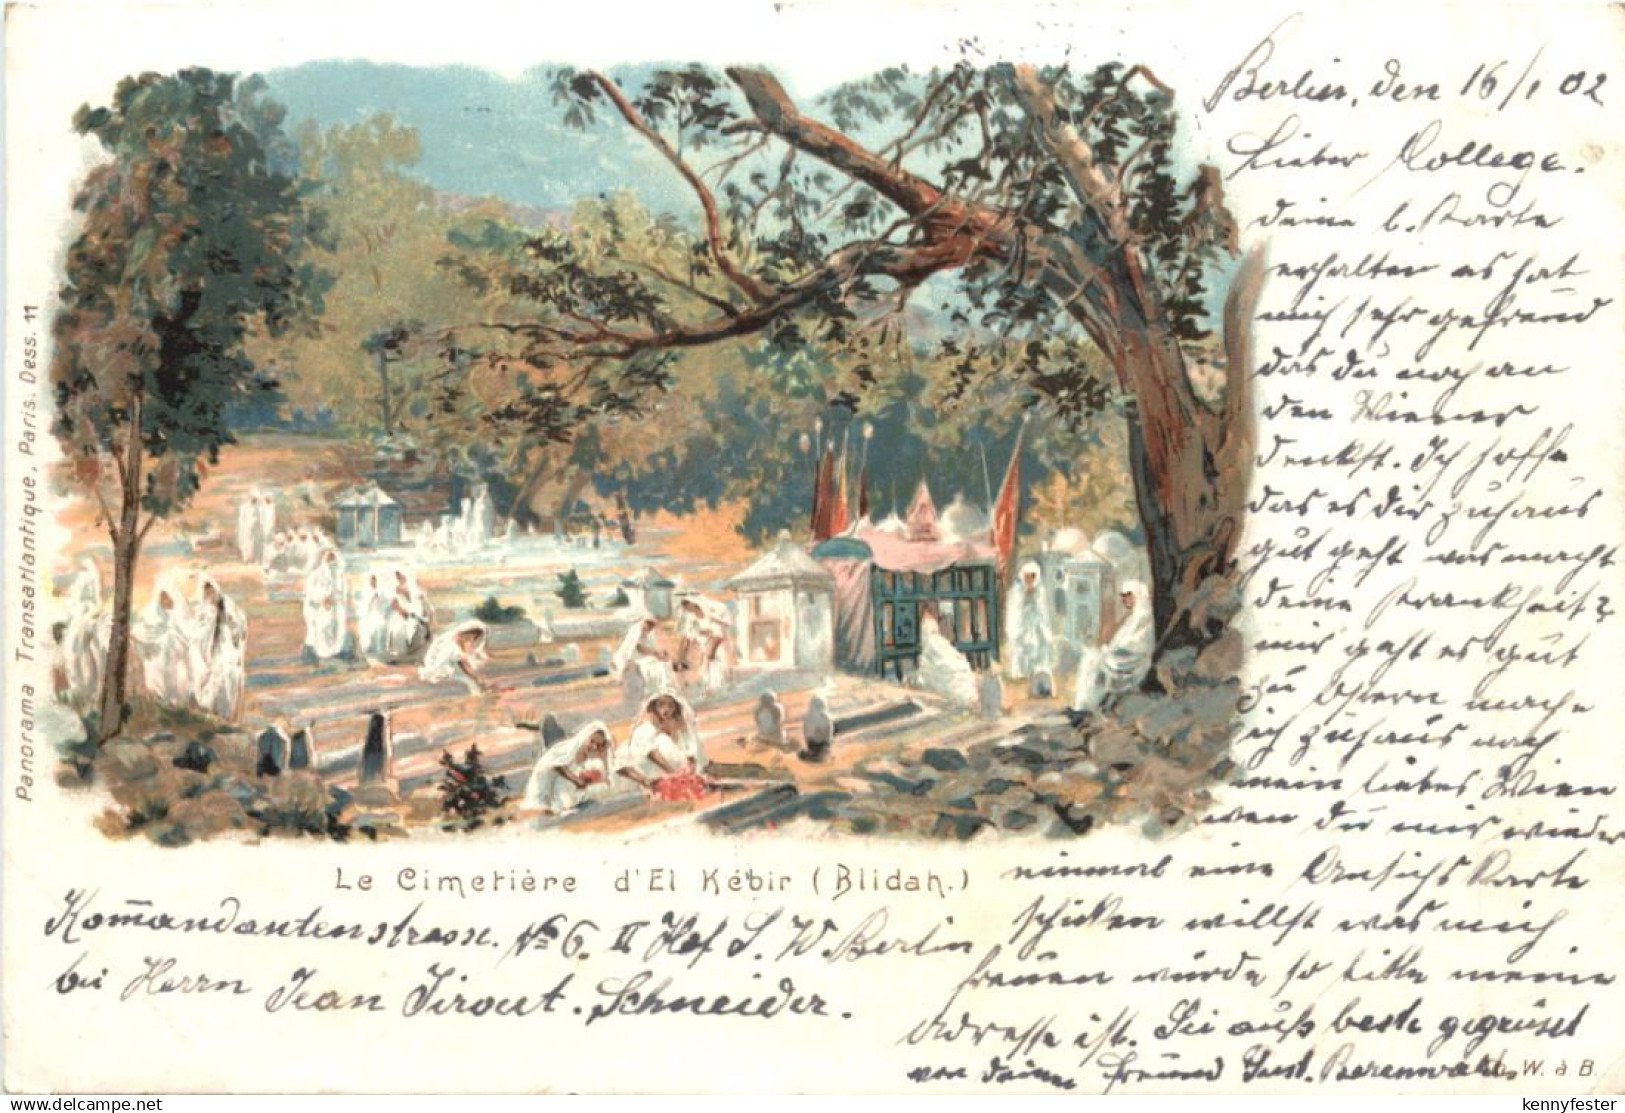 Berlin, den 16/1 02
Lieber College.
deine l. Karte
erhalten es hat
mich sehr gefreud
das du noch an
den Wiener
denkst. Ich hoffe
das es dir zuhaus
gut geht was macht
deine Krankheit?
mir geht es gut
zu Ostern mache
ich zuhaus nach
mein liebes Wien
wen du mir wieder
einmal eine Ansichskarte
schicken willst was mich
freuen würde so bitte meine
Adresse ist. Sei aufs beste gegrüsst
von deinem Freund
Panorama Transatlantique, Paris. Dess. 11
Le Cimetière d'El Kébir (Blidah.)
Kom̄andantenstrasse. No 6. II Hof S. W. Berlin
bei Herrn Jean Sirout. Schneider.
W. à B.
kennyfester